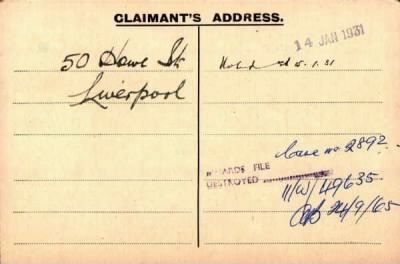 CLAIMANT'S ADDRESS.
50 Howe St
Liverpool
14 JAN 1931
5.1.31
Case no 2892
AWARDS FILE
DESTROYED
11/W/49635
24/9/65